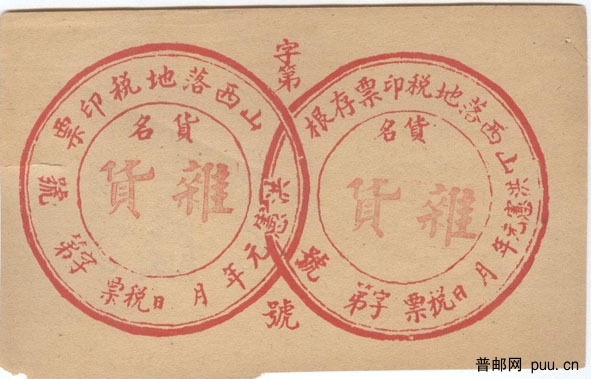 字第
號
山西落地税印票
貨名
雜貨
洪憲元年 月 日
税票 字第 號
山西落地税印票存根
貨名
雜貨
洪憲元年 月 日
税票 字第 號
普邮网 puu.cn